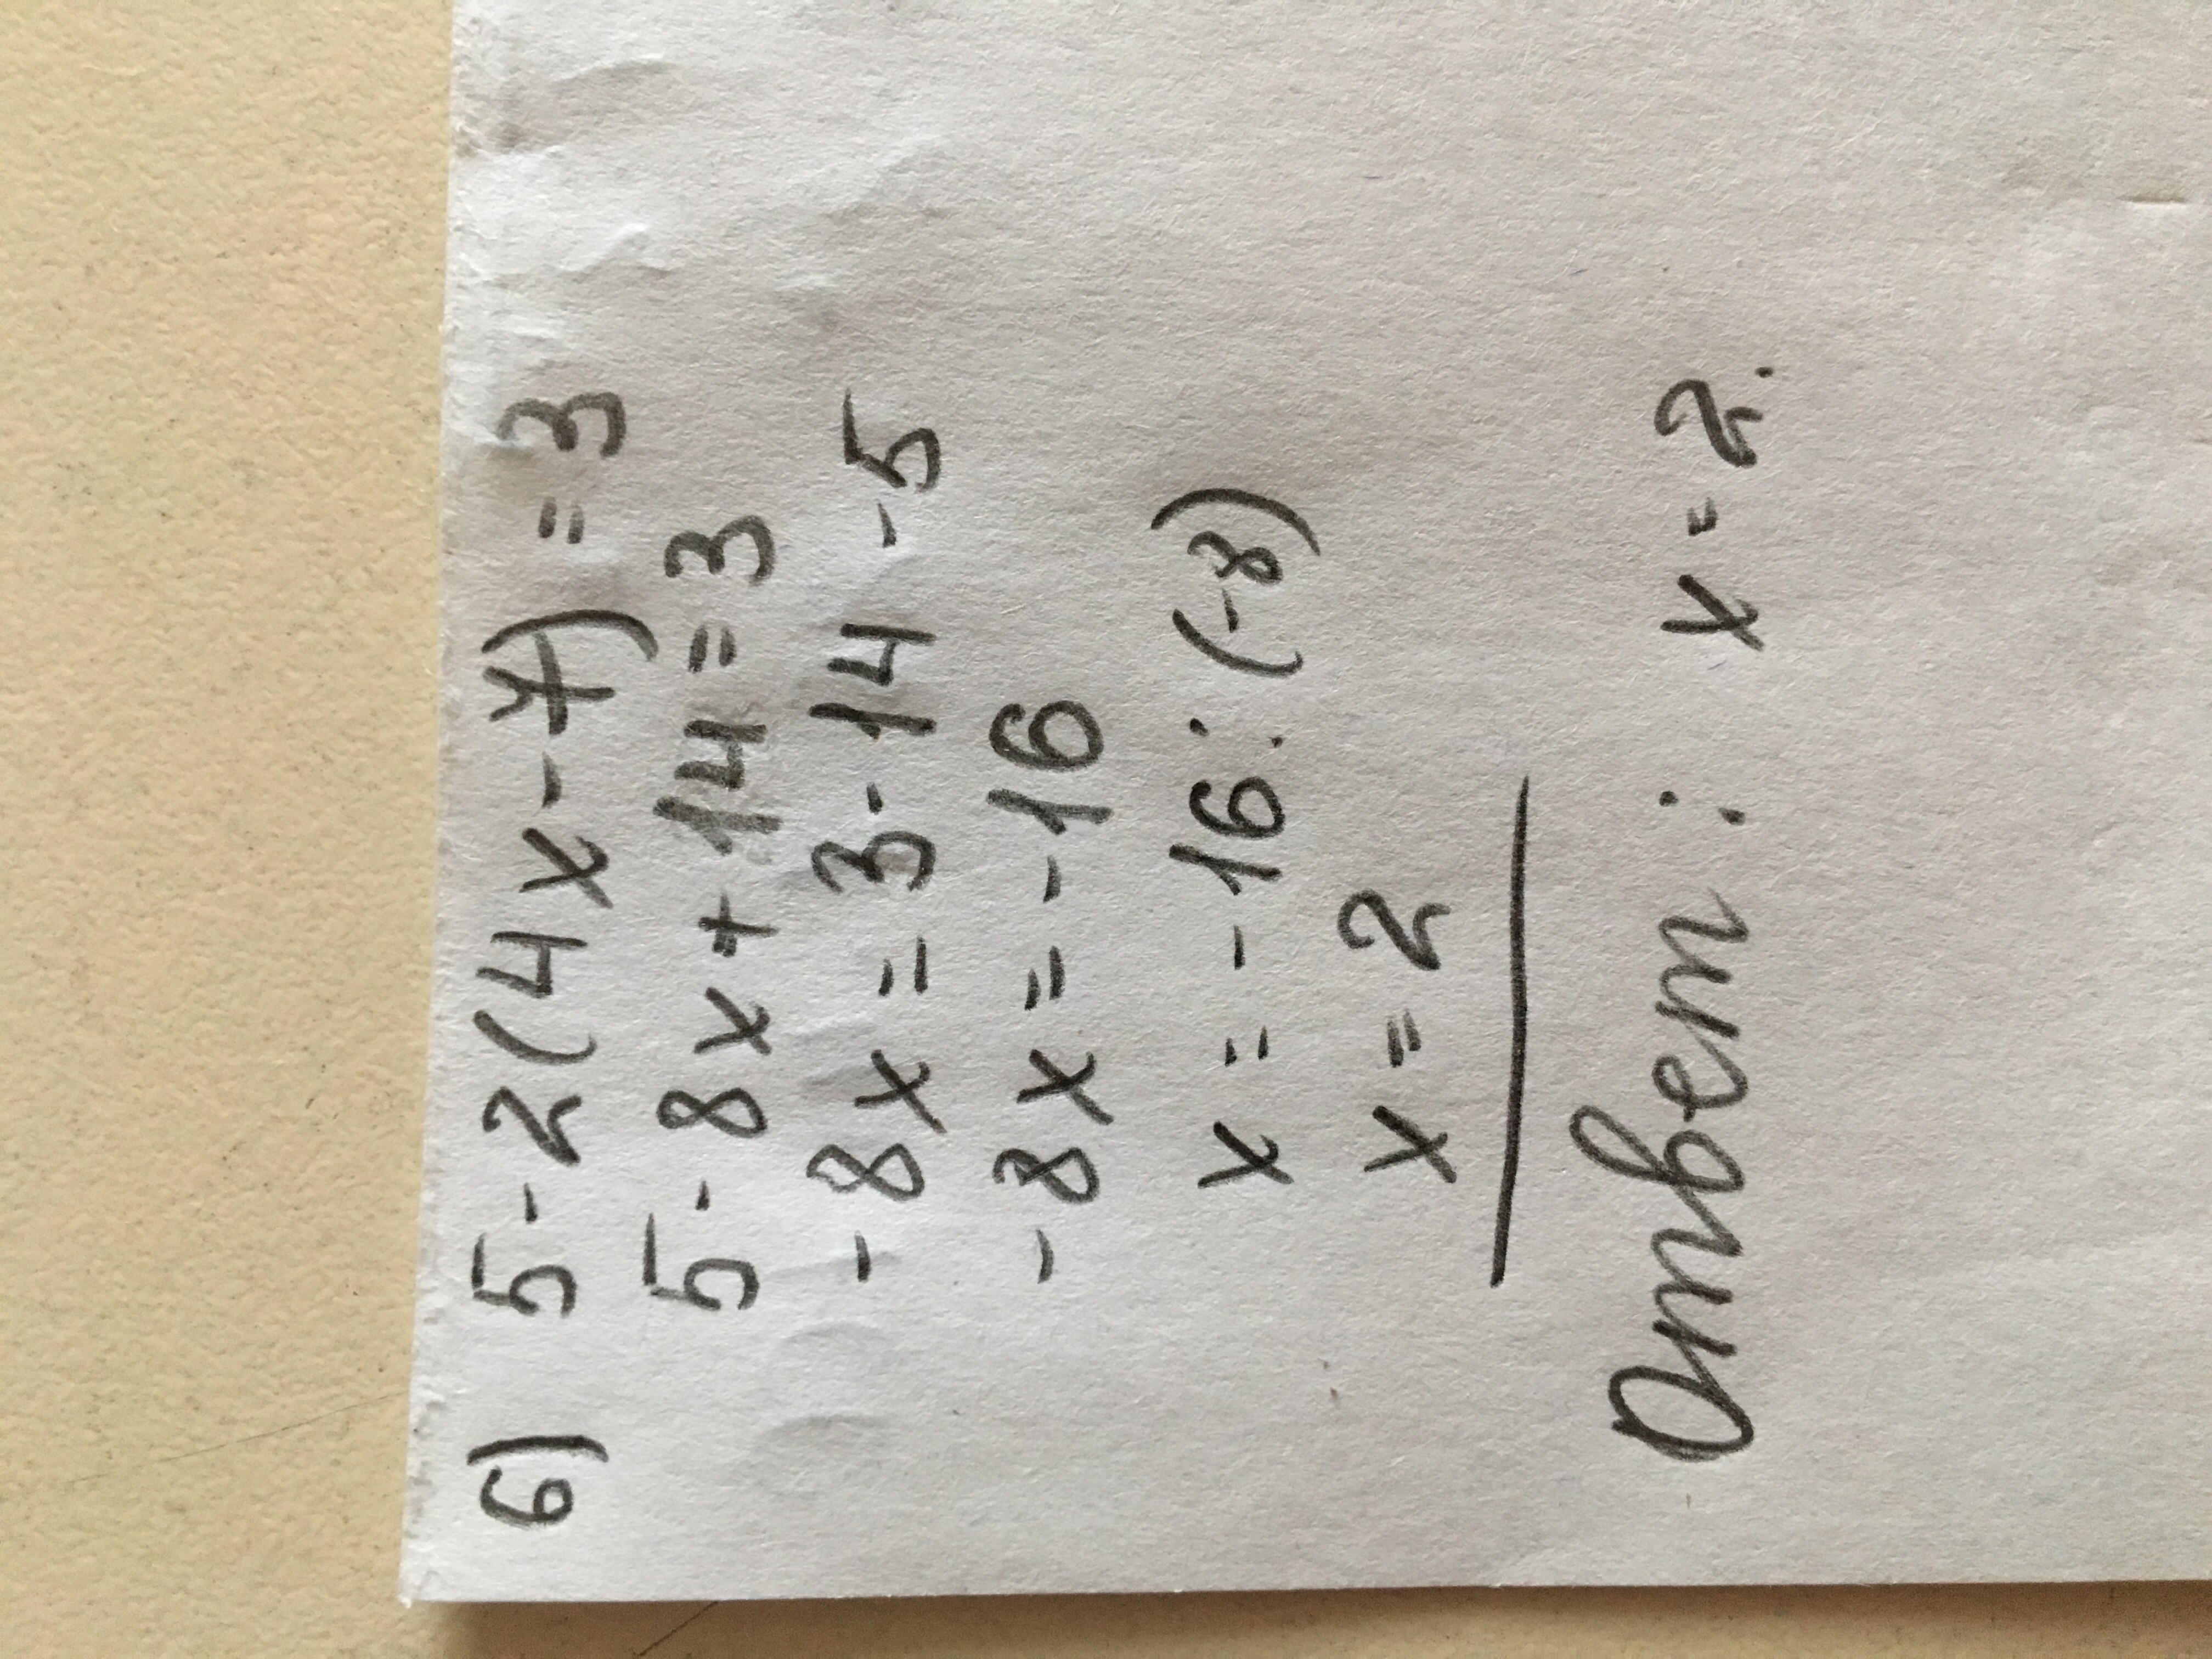 6) 5-2(4x-7)=3
5-8x+14=3
-8x=3-14-5
-8x=-16
x=-16:(-8)
x=2
Ответ: x=2.